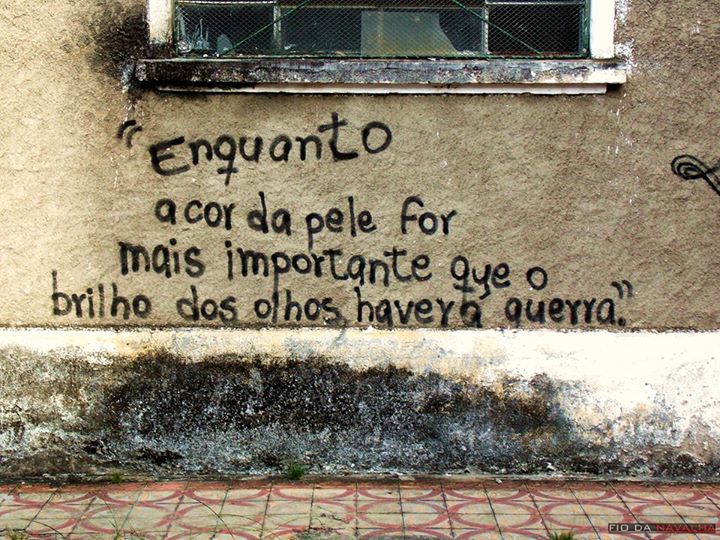 "Enquanto
a cor da pele for
mais importante que o
brilho dos olhos, haverá guerra."
FIO DA NAVALHA